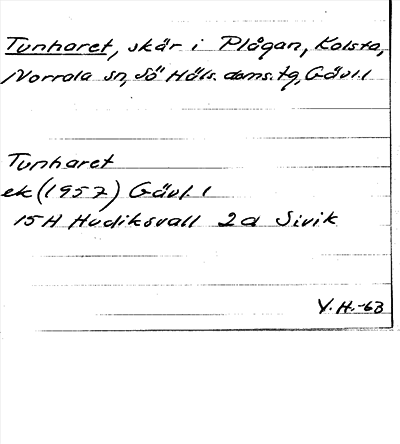 Tunharet, skär i Plågan, Kolsta,
Norrala sn, Sö Häls. doms. tg, Gävl. l
Tunharet
ek (1957) Gävl. l
15H Hudiksvall 2a Sivik
Y. H. -63